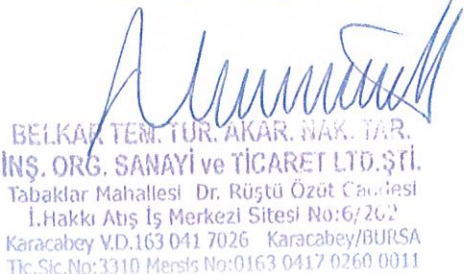 BELKAR TEM. TUR. AKAR. NAK. TAR.
İNŞ. ORG. SANAYİ ve TİCARET LTD.ŞTİ.
Tabaklar Mahallesi Dr. Rüştü Özüt Caddesi
İ.Hakkı Atış İş Merkezi Sitesi No:6/262
Karacabey V.D.163 041 7026 Karacabey/BURSA
Tic.Sic.No:3310 Mersis No:0163 0417 0260 0011